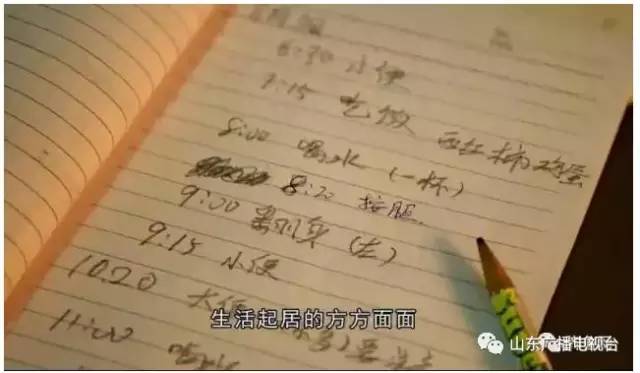 6:30 小便
7:15 吃饭 西红柿鸡蛋
8:00 喝水(一杯)
8:20 按腿
9:00 翻身(左)
9:15 小便
10.20 大便
11:00 喝水
生活起居的方方面面
山东广播电视台